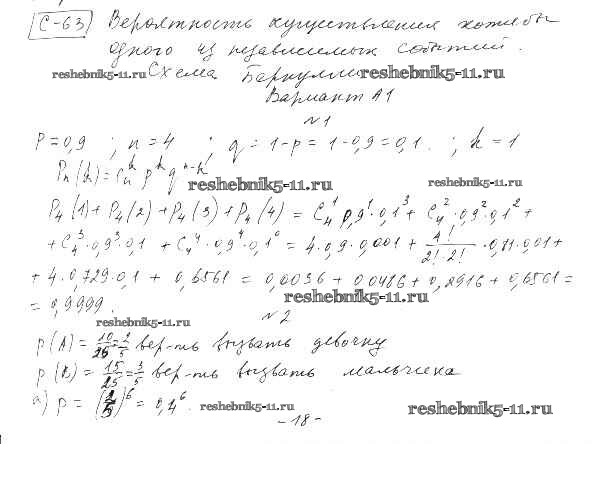 С-63 Вероятность осуществления хотя бы
одного из независимых событий.
reshebnik5-11.ru Схема Бернулли reshebnik5-11.ru
Вариант А1
№1
P = 0,9 ; n = 4 ; q = 1-p = 1-0,9 = 0,1. ; k = 1
Pn(k) = Cn^k p^k q^n-k reshebnik5-11.ru reshebnik5-11.ru
P4(1) + P4(2) + P4(3) + P4(4) = C4^1 0,9^1·0,1^3 + C4^2·0,9^2·0,1^2 +
+ C4^3·0,9^3·0,1 + C4^4·0,9^4·0,1^0 = 4·0,9·0,001 + 4!/2!·2!·0,81·0,01 +
+ 4·0,729·0,1 + 0,6561 = 0,0036 + 0,0486 + 0,2916 + 0,6561 =
= 0,9999. reshebnik5-11.ru
№2
reshebnik5-11.ru
p(A) = 10/25 = 2/5 вер-ть вызвать девочку
p(B) = 15/25 = 3/5 вер-ть вызвать мальчика
а) p = (2/5)^6 = 0,4^6. reshebnik5-11.ru reshebnik5-11.ru
-18-